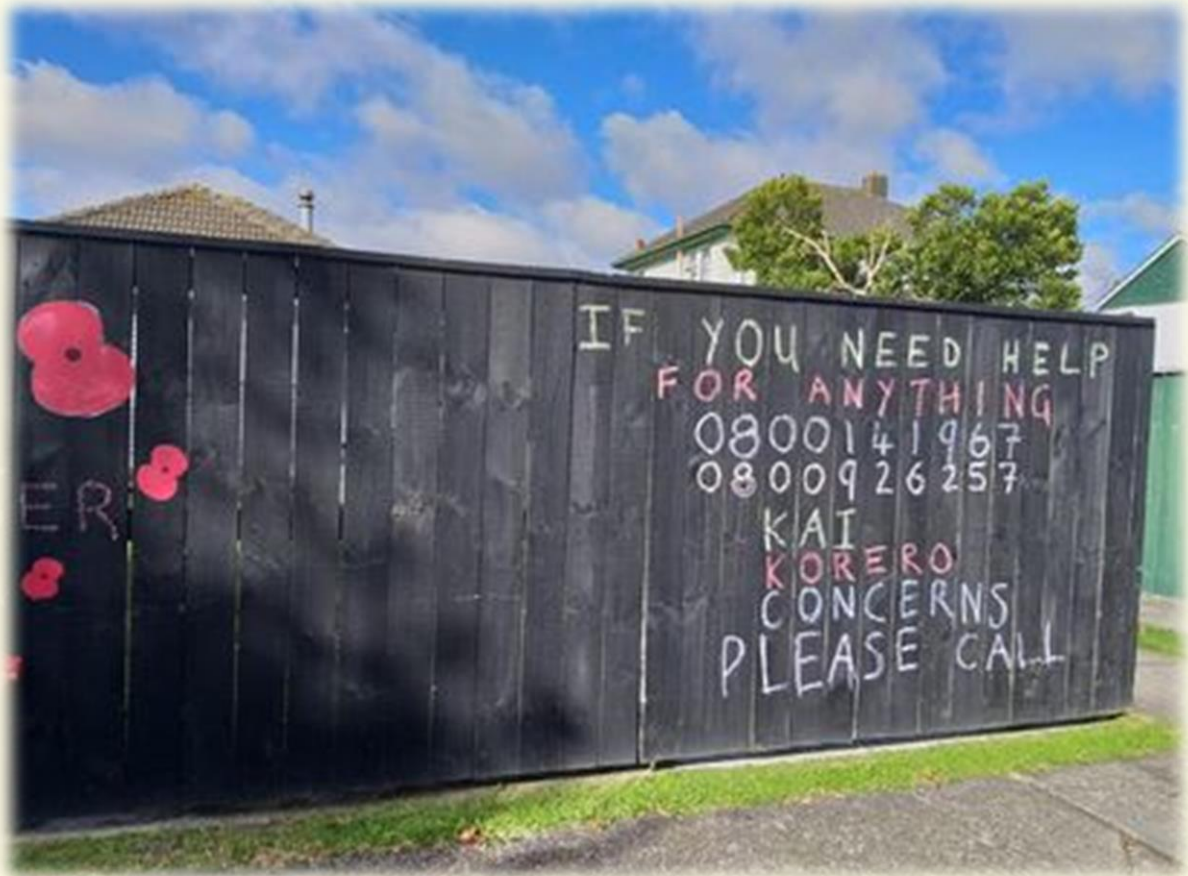 ER
IF YOU NEED HELP
FOR ANYTHING
0800141967
0800926257
KAI
KORERO
CONCERNS
PLEASE CALL